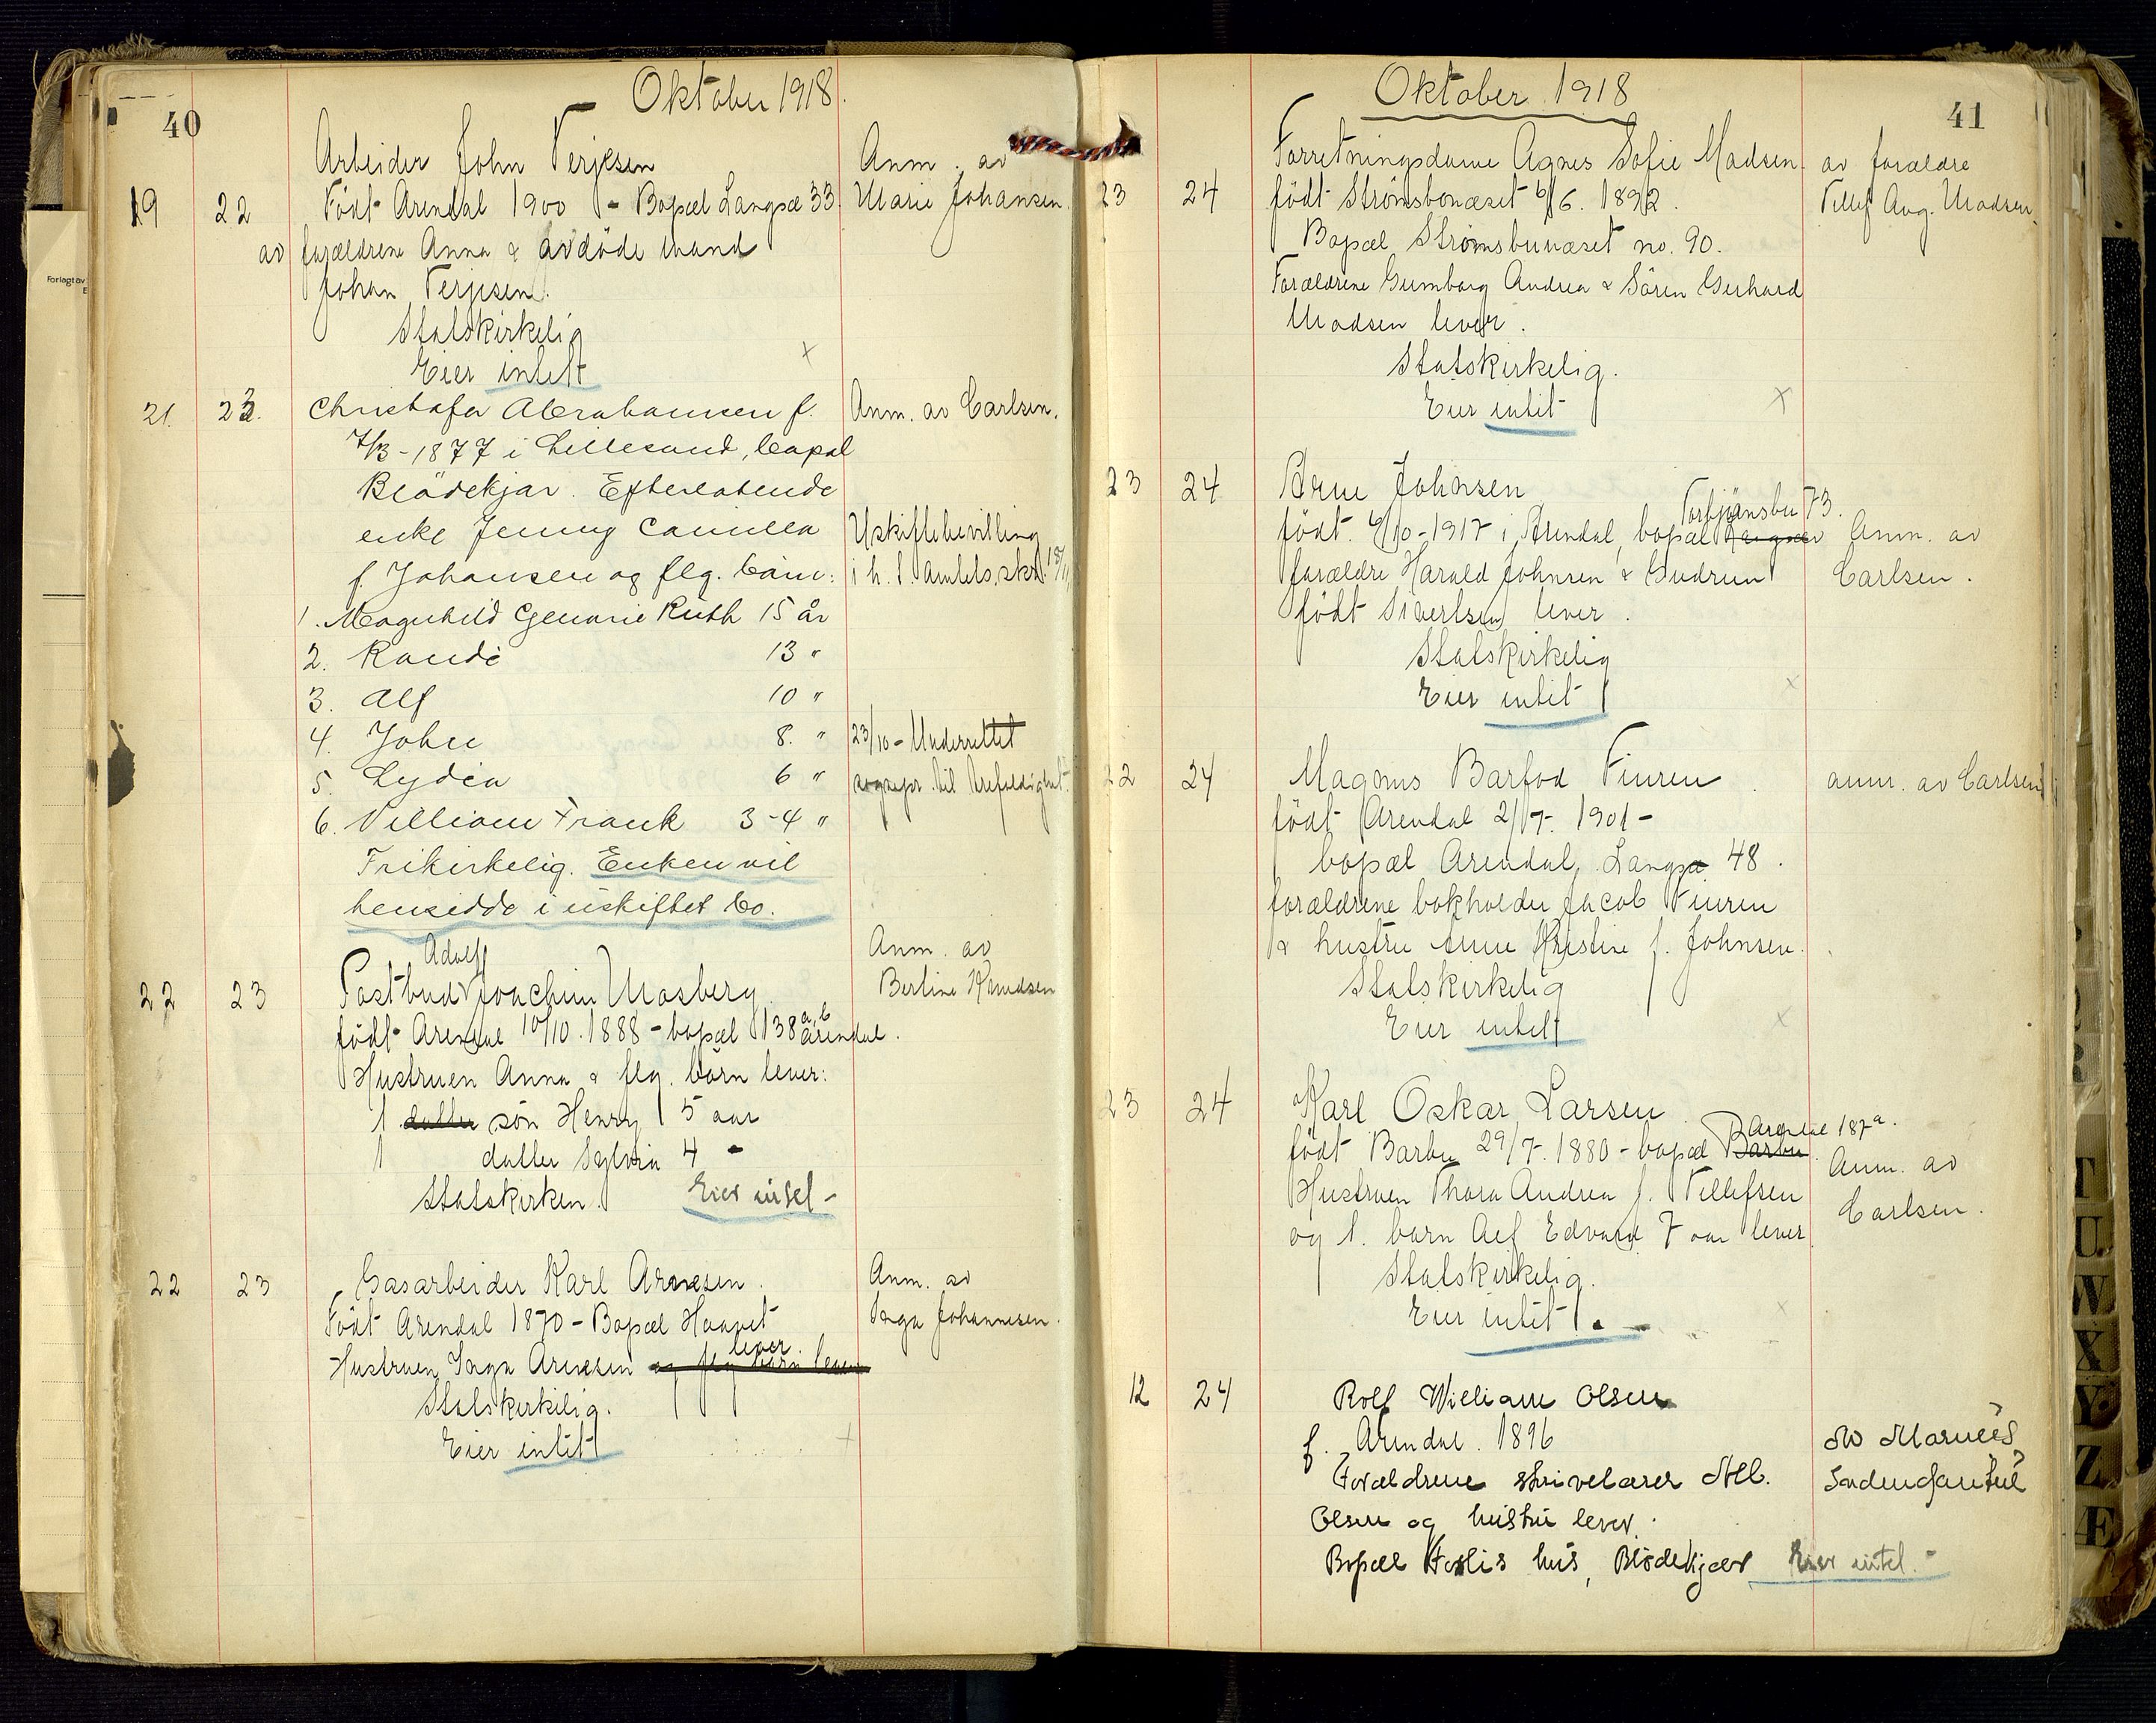 40
Oktober 1918.
Arbeider John Terjesen
Anm. av
19 22 Født Arendal 1900 - Bopæl Langsæ 33.
Marie Johansen.
av forældrene Anna & avdøde mand
Johan Terjesen.
Statskirkelig
Eier intet
x
21. 23. Christofer Abrahamsen f.
Anm. av Carlsen.
7/3-1877 i Lillesand, bopæl
Blödekjær. Efterlatende
enke Jenny Camilla
Uskiftebevilling
f. Johansen og flg. barn:
i h. t. Amtets skr. 18/11
1. Magnhild Genarie Ruth 15 år
2. Randi 13 "
3. Alf 10 "
4. John 8. "
23/10 - Underrettet
5. Lydia 6 "
sogepr. til Trefoldighet.
6. Villiam Frank 3-4 "
Frikirkelig. Enken vil
hensidde i uskiftet bo.
Adolf
Anm. av
22 23 Postbud Joachim Mosberg.
Berline Knudsen
født Arendal 10/10. 1888 - bopæl 138 a,b Arendal.
Hustruen Anna & flg. børn lever:
1 datter søn Henry 5 aar
1 datter Sylvia 4 -
Statskirken. Eier intet -
22 23 Gasarbeider Karl Arnesen.
Anm. av
Født Arendal 1870 - Bopæl Haavet
Inga Johannesen.
lever.
Hustruen Inga Arnesen og flg børn lever
Statskirkelig.
Eier intet
x
Oktober 1918
41
Forretningsdame Agnes Sofie Madsen
av forældre
23 24 født Strømsbonæset 6/6. 1892.
Tellef Aug. Madsen.
Bopæl Strømsbunæset no. 90.
Forældrene Gumborg Andrea & Sören Gerhard
Madsen lever.
Statskirkelig.
Eier intet
x
23 24 Arne Johnsen
Torbjönsbu 73.
født. 6/10-1917 i Arendal, bopæl Langsæ
Anm. av
forældre Harald Johnsen & Gudrun
Carlsen.
født Sivertsen lever.
Statskirkelig
Eier intet
x
22 24 Magnus Barfod Finren
anm. av Carlsen
født Arendal 2/7. 1901 -
bopæl Arendal, Langsæ 48.
forældrene bokholder Jacob Finren
& hustru Anne Kristine f. Johnsen.
Statskirkelig
Eier intet
x
23 24 Karl Oskar Larsen
Arendal 187a.
født Barbu 29/7. 1880 - bopæl Barbu
Anm. av
Hustruen Thora Andrea f. Tellefsen
Carlsen.
og 1. barn Alf Edvard 7 aar lever
Statskirkelig.
Eier intet.
x
12 24 Rolf William Olsen
f. Arendal. 1896
Forældrene skrivelærer Alb.
Olsen og hustru lever.
Bopæl hus, Blödekjær Eier intet. -